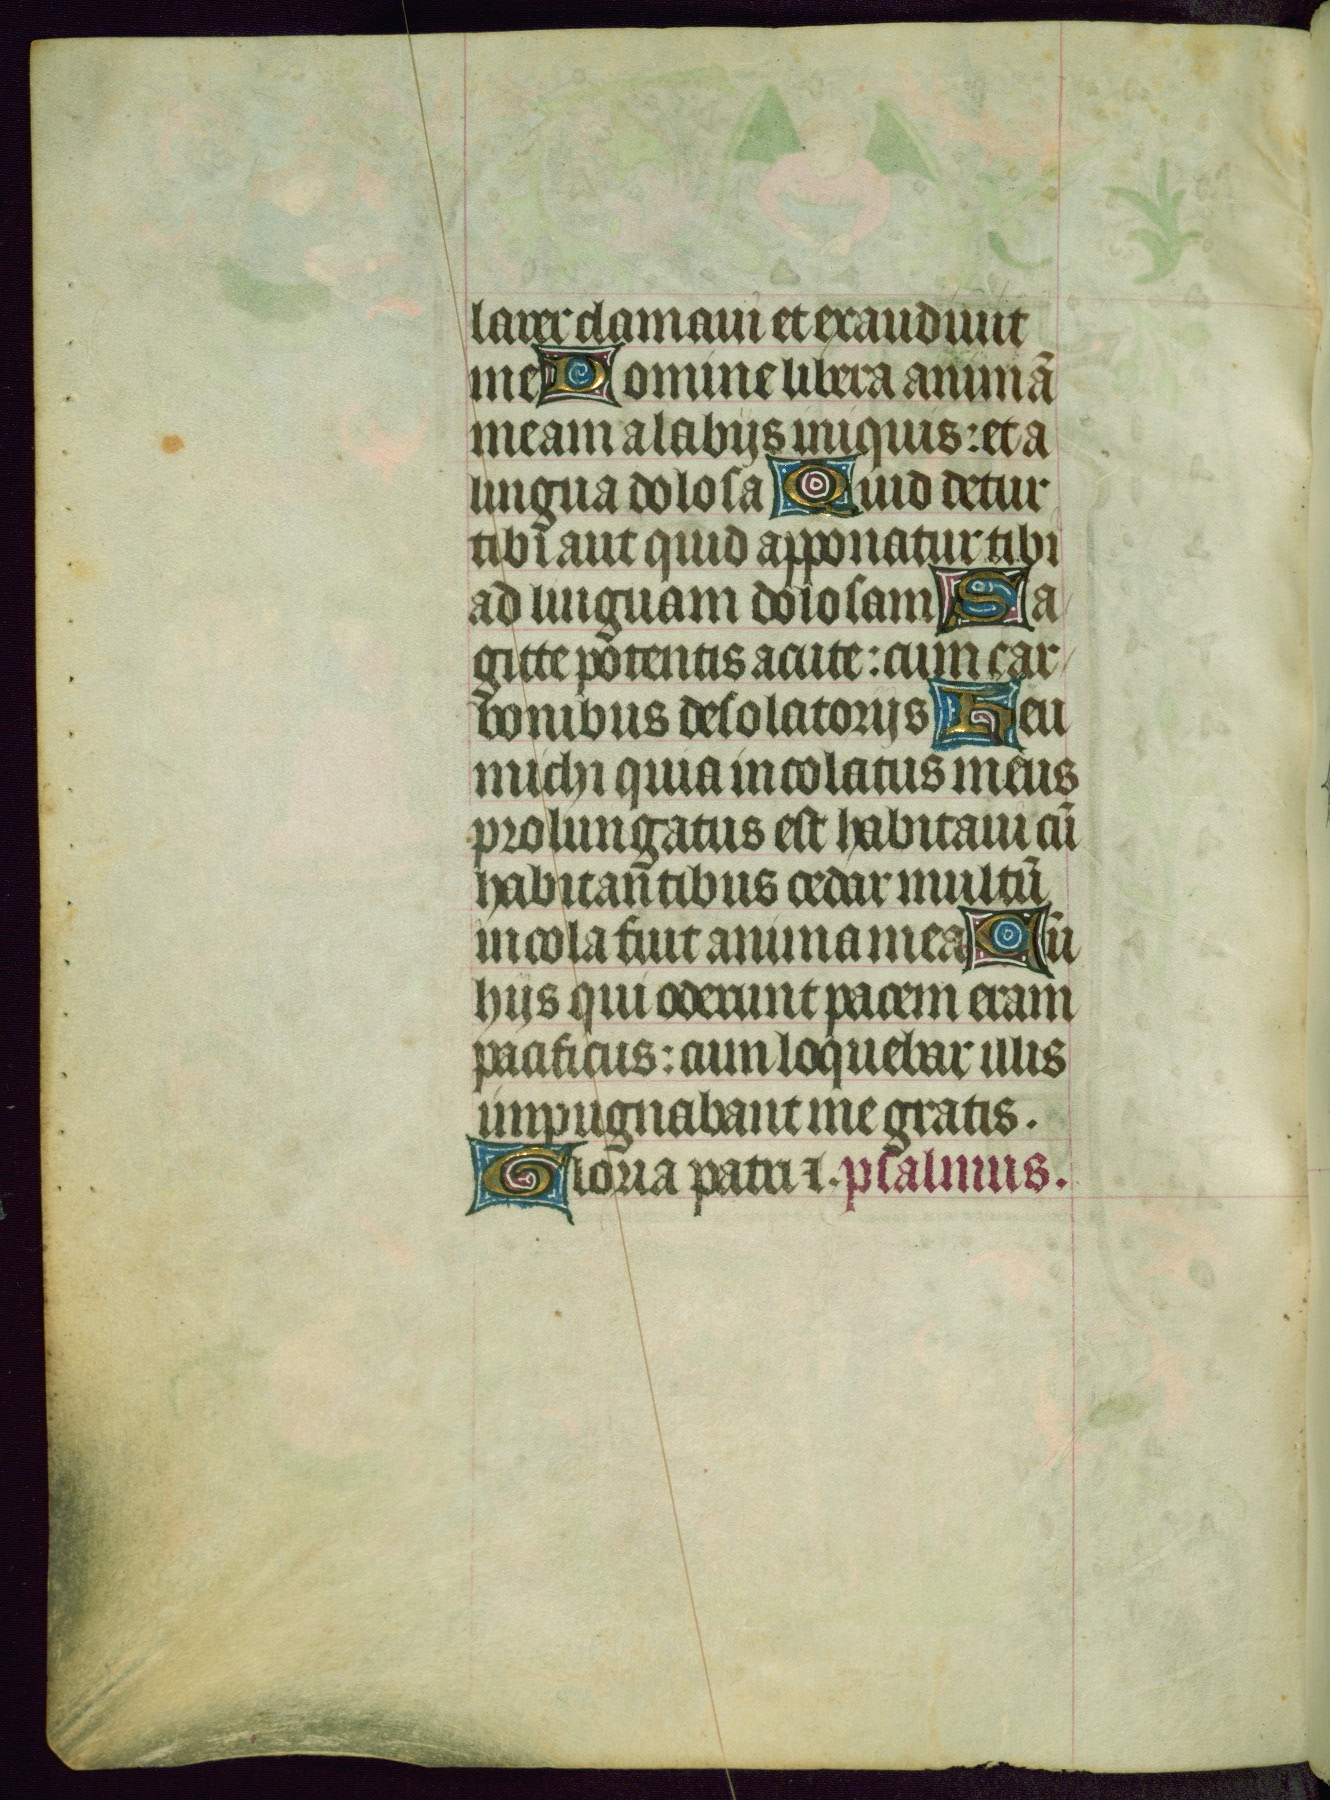 larer clamaui et exaudiuit
me Domine libera animā
meam a labijs iniquis: et a
lingua dolosa Quid detur
tibi aut quid apponatur tibi
ad linguam dolosam Sa
gitte potentis acute: cum car
bonibus desolatorijs Heu
michi quia incolatus meus
prolungatus est habitaui cū
habitantibus cedar multū
incola fuit anima mea Cū
hijs qui oderunt pacem eram
pacificus: cum loquebar illis
impugnabant me gratis.
Gloria patri ⁊. psalmus.